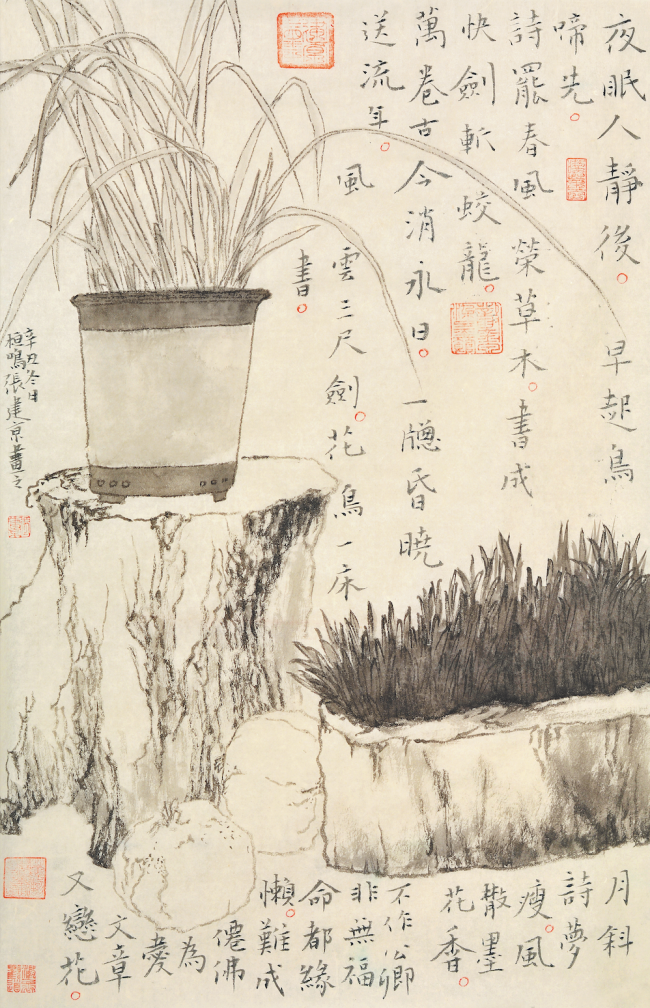 夜眠人靜後。早起鳥
啼先。
詩罷春風榮草木。書成
快劍斬蛟龍。
萬卷古今消永日。一牕昏曉
送流年。
風雲三尺劍。花鳥一床
書。
辛丑冬日
桓鳴張建京畫之
月斜
詩夢
瘦。風
散墨
花香。
不作公卿
非無福
命都緣
懶。難成
僊佛
為
愛
文章
又戀花。